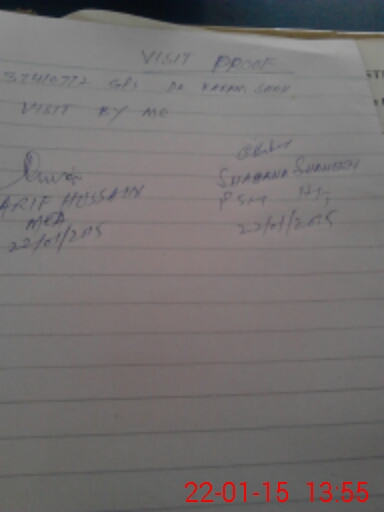 VISIT PROOF
37410772 GPS
VISIT BY ME
ARIF HUSSAIN
MEA
22/01/2015
SHABANA SHAHEEN
PST HT,
22/01/2015
ST
22-01-15 13:55